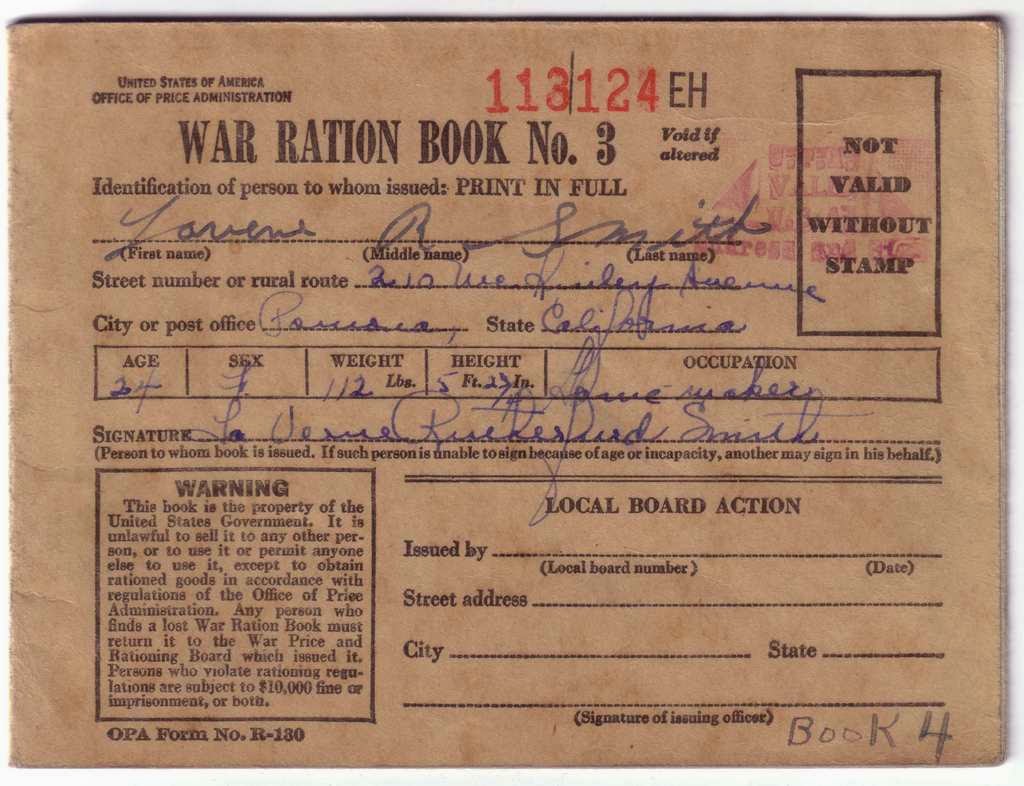 UNITED STATES OF AMERICA
OFFICE OF PRICE ADMINISTRATION
113124 EH
WAR RATION BOOK No. 3
Void if
altered
NOT
VALID
WITHOUT
STAMP
Identification of person to whom issued: PRINT IN FULL
Laverne R. Smith
(First name) (Middle name) (Last name)
Street number or rural route 210 McKinley Avenue
City or post office Pomona, State California
AGE SEX WEIGHT HEIGHT OCCUPATION
34 F 112 Lbs. 5 Ft. In. Home maker
SIGNATURE La Verne Rutherford Smith
(Person to whom book is issued. If such person is unable to sign because of age or incapacity, another may sign in his behalf.)
WARNING
This book is the property of the
United States Government. It is
unlawful to sell it to any other per-
son, or to use it or permit anyone
else to use it, except to obtain
rationed goods in accordance with
regulations of the Office of Price
Administration. Any person who
finds a lost War Ration Book must
return it to the War Price and
Rationing Board which issued it.
Persons who violate rationing regu-
lations are subject to $10,000 fine or
imprisonment, or both.
OPA Form No. R-130
LOCAL BOARD ACTION
Issued by
(Local board number) (Date)
Street address
City State
(Signature of issuing officer)
BOOK 4